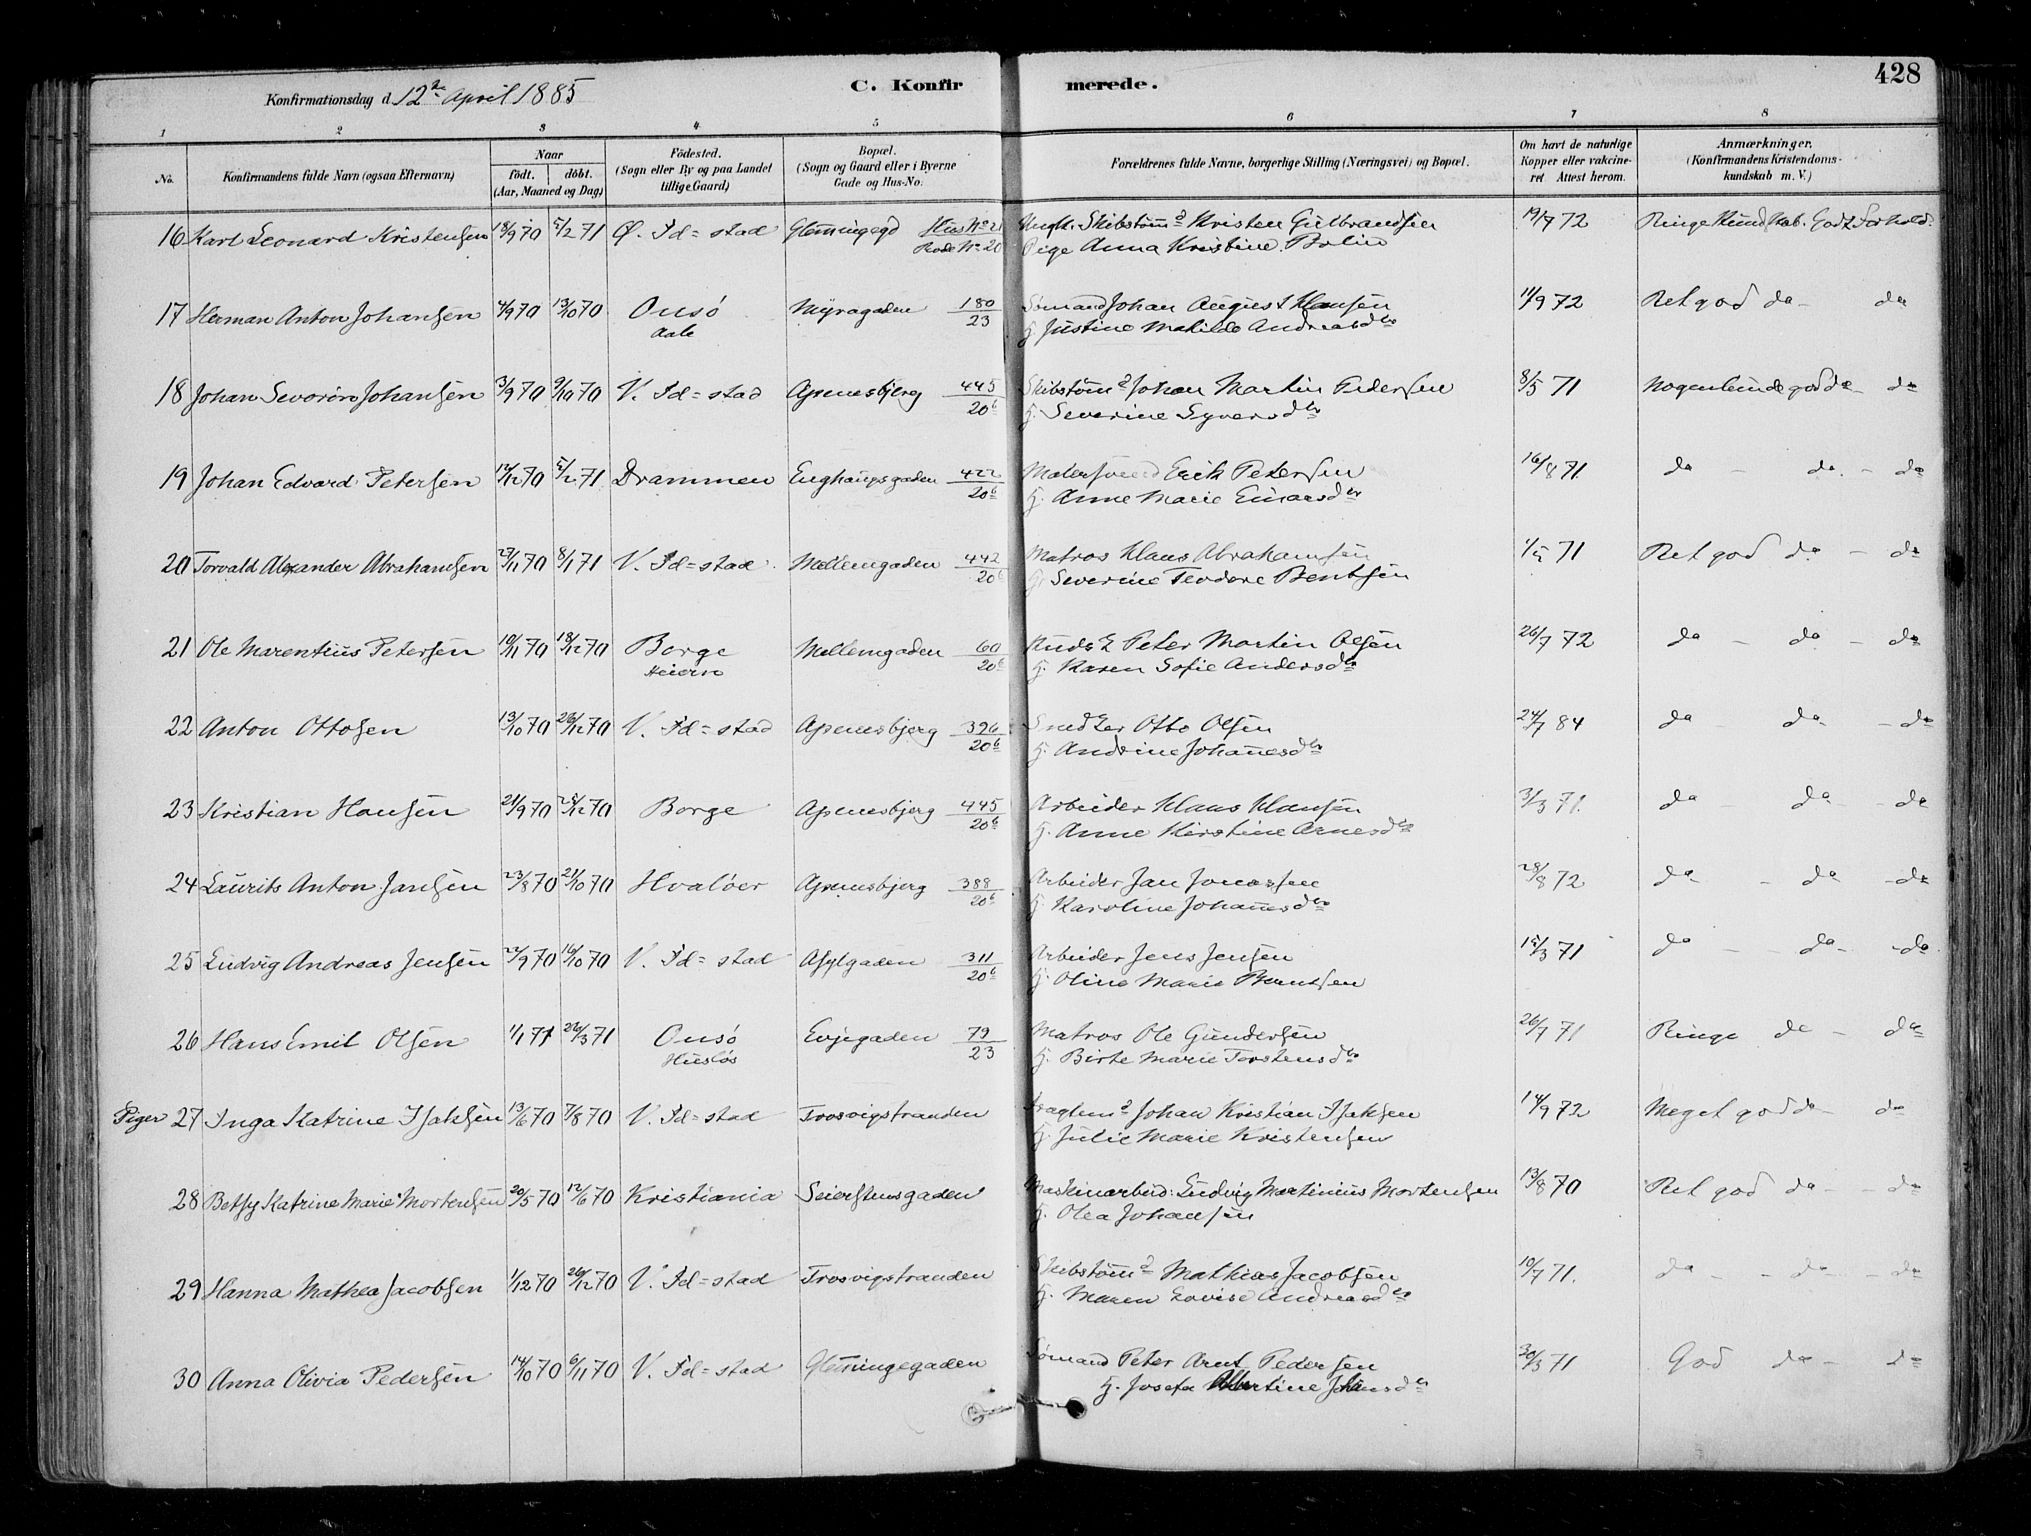 Konfirmationsdag d. 12te April 1885
C. Konfirmerede.
428
1 2 3 4 5 6 7 8
No.
Konfirmandens fulde Navn (ogsaa Efternavn)
Naar
født. døbt.
(Aar, Maaned og Dag)
Fødested.
(Sogn eller By og paa Landet
tillige Gaard)
Bopæl.
(Sogn og Gaard eller i Byerne
Gade og Hus-No.
Forældrenes fulde Navne, borgerlige Stilling (Næringsvei) og Bopæl.
Om havt de naturlige
Kopper eller vakcine-
ret. Attest herom.
Anmærkninger.
(Konfirmandens Kristendoms-
kundskab m. V.)
16 Karl Leonard Kristensen 18/9 70 5/2 71 Ø. Fd=stad Glemmingegd Hus No 21 Ungk. Skibstømd Kristen Gulbrandsen 19/7 72 Ringe Kundskab. Godt Forhold.
Rode No 20 Pige Anna Kristine Bolin
17 Herman Anton Johansen 4/9 70 13/10 70 Onsø Myragaden 180 Sømand Johan August Hansen 11/9 72 Ret god do - do
Aale 23 H. Justine Matilde Andreasdr
18 Johan Severin Johansen 3/9 70 9/10 70 V. Fd=stad Apenesbjerg 445 Skibstømd Johan Martin Pedersen 8/5 71 Nogenlunde god do - do
20b H. Severine Syversdr
19 Johan Edvard Petersen 12/12 70 5/2 71 Drammen Enghaugsgaden 422 Malersvend Erik Petersen 16/8 71 do - do - do
20b H. Anne Marie Einarsdr
20 Torvald Alexander Abrahamsen 27/11 70 8/1 71 V. Fd=stad Mellemgaden 442 Matros Klaus Abrahamsen 1/5 71 Ret god do - do
20b H. Severine Teodore Bentsen
21 Ole Marentius Petersen 10/11 70 18/12 70 Borge Mellemgaden 60 Peter Martin Olsen 26/7 72 do - do - do
Heiern 20b H. Karen Sofie Andersdr
22 Anton Ottosen 13/10 70 26/12 70 V. Fd=stad Apenesbjerg 396 Snedker Otto Olsen 24/7 84 do do - do
20b H. Andrine Johanesdr
23 Kristian Hansen 21/9 70 28/12 70 Borge Apenesbjerg 445 Arbeider Klaus Hansen 3/3 71 do do - do
20b H. Anne Kirstine Arnesdr
24 Laurits Anton Jansen 23/8 70 21/10 70 Hvaløer Apenesbjerg 388 Arbeider Jan Jonassen 28/8 72 do - do - do
20b H. Karoline Johanesdr
25 Ludvig Andreas Jensen 22/9 70 16/10 70 V. Fd=stad Asylgaden 311 Arbeider Jens Jensen 15/3 71 do - do - do
20b H. Oline Marie Berntsen
26 Hans Emil Olsen 1/1 71 26/3 71 Onsø Evjegaden 79 Matros Ole Gundersen 26/7 71 Ringe do - do
Husløs 23 H. Birte Marie Torstensdr
Piger 27 Inga Katrine Isaksen 13/6 70 7/8 70 V. Fd=stad Trosvigstranden Johan Kristian Isaksen 14/9 72 Meget god do - do
H. Julie Marie Kristensen
28 Betsy Katrine Marie Mortensen 20/5 70 12/6 70 Kristiania Seierstensgaden Maskinarbeid: Ludvig Martinius Mortensen 13/8 70 Ret god do - - do
H. Olea Johansen
29 Hanna Mathea Jacobsen 1/12 70 26/12 70 V. Fd=stad Trosvigstranden Skibstømd Mathias Jacobsen 10/7 71. do - - do - - do
H. Maren Lovise Andreasdr
30 Anna Olivia Pedersen 14/10 70 6/11 70 V. Fd=stad Glemmingegaden Sømand Peter Arnt Pedersen 30/3 71 God do - do
H. Josefa Albertine Johansdr